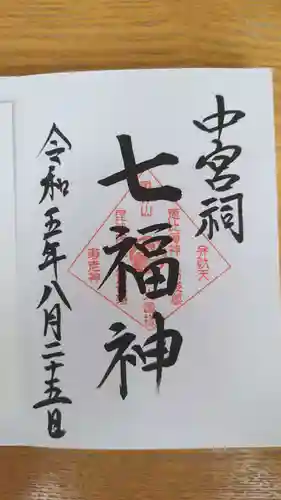 中宮祠
七福神
令和五年八月二十五日
弁財天
寿老神